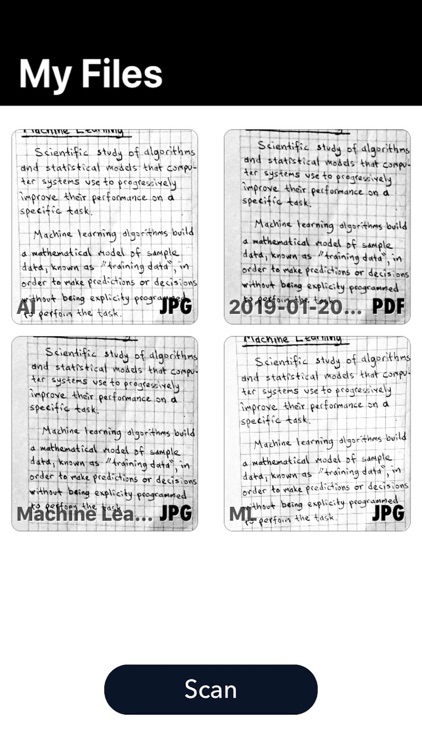 My Files
Machine Learning
Scientific study of algorithms
and statistical models that compu-
ter systems use to progressively
improve their performance on a
specific task.
Machine learning algorithms build
a mathematical model of sample
data, known as "training data", in
order to make predictions or decisions
without being explicity programmed
to perform the task.
AI
JPG
Scientific study of algorithms
and statistical models that compu-
ter systems use to progressively
improve their performance on a
specific task.
Machine learning algorithms build
a mathematical model of sample
data, known as "training data", in
order to make predictions or decisions
without being explicity programmed
2019-01-20...
PDF
Scientific study of algorithms
and statistical models that compu-
ter systems use to progressively
improve their performance on a
specific task.
Machine learning algorithms build
a mathematical model of sample
data, known as "training data", in
order to make predictions or decisions
without being explicity programmed
to perform the task.
Machine Lea...
JPG
Machine Learning
Scientific study of algorithms
and statistical models that compu-
ter systems use to progressively
improve their performance on a
specific task.
Machine learning algorithms build
a mathematical model of sample
data, known as "training data", in
order to make predictions or decisions
without being explicity programmed
to perform the task.
ML
JPG
Scan